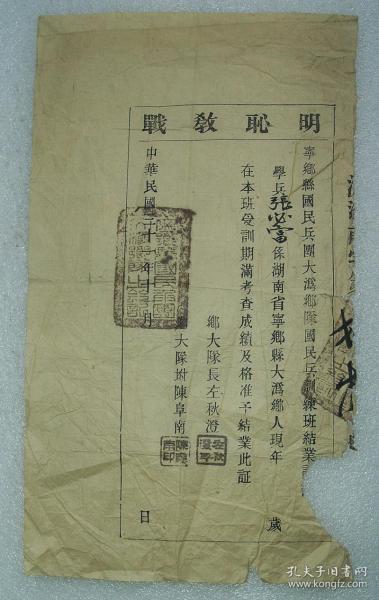 明恥教戰
寧鄉縣國民兵團大溈鄉隊國民兵訓練班結業
學兵張必富係湖南省寧鄉縣大溈鄉人現年 歲
在本班受訓期滿考查成績及格准予結業此証
鄉大隊長左秋澄
鄉大隊附陳阜南
中華民國三十 年十 月 日
孔夫子旧书网